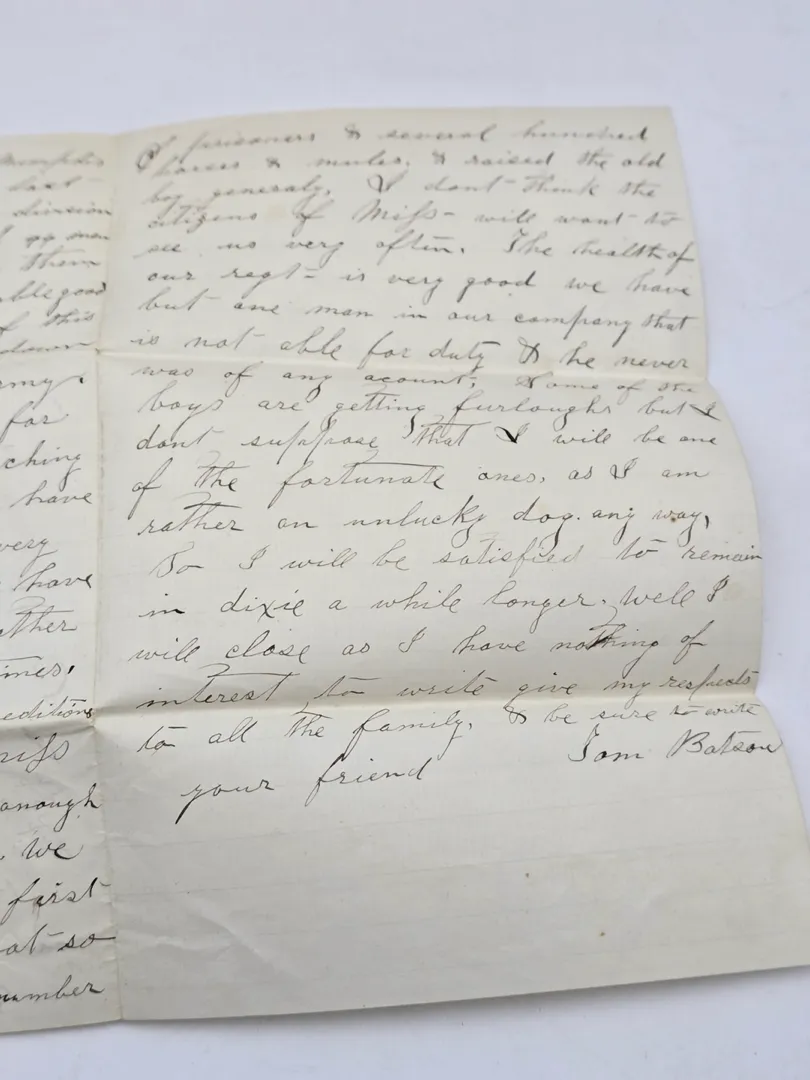 Memphis
last
division
men
them
ble good
f this
down
army.
for
ching
have
very
have
ther
imes,
editions
Miss
anough
, we
first
at so
number
of prisoners & several hundred
horses & mules, & raised the old
boy generaly, I dont think the
citizens of Miss- will want to
see us very often. The health of
our regt- is very good we have
but one man in our company that
is not able for duty & he never
was of any acount, Some of the
boys are getting furloughs but I
dont suppose that I will be one
of the fortunate ones, as I am
rather an unlucky dog. any way,
So I will be satisfied to remain
in dixie a while longer. Well I
will close as I have nothing of
interest to write give my respects
to all the family, & be sure to write
your friend Tom Batson